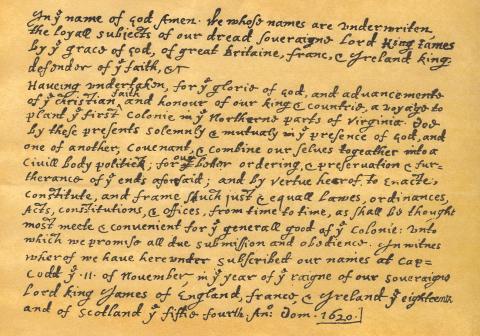 In yͤ name of God Amen. We whose names are underwriten,
the loyall subjects of our dread soveraigne Lord King James
by yͤ grace of God, of great Britaine, franc, & Ireland king,
defender of yͤ faith, &c
Haveing undertaken, for yͤ glorie of God, and advancemente
of yͤ christian faith and honour of our king & countrie, a voyage to
plant yͤ first colonie in yͤ Northerne parts of Virginia. Doe
by these presents solemnly & mutualy in yͤ presence of God, and
one of another, covenant, & combine our selves togeather into a
Civill body politick; for our better ordering, & preservation & fur-
therance of yͤ ends aforesaid; and by vertue hearof, to enacte,
constitute, and frame such just & equall Lawes, ordinances,
Acts, constitutions, & offices, from time to time, as shall be thought
most meete & convenient for yͤ generall good of yͤ colonie: unto
which we promise all due submission and obedience. In witnes
wherof we have hereunder subscribed our names at Cap-
Codd yͤ .11. of November, in yͤ year of yͤ raigne of our soveraigne
Lord king James of England, france, & Ireland yͤ eighteenth
and of Scotland yͤ fiftie fourth. Anº: Dom. 1620.]